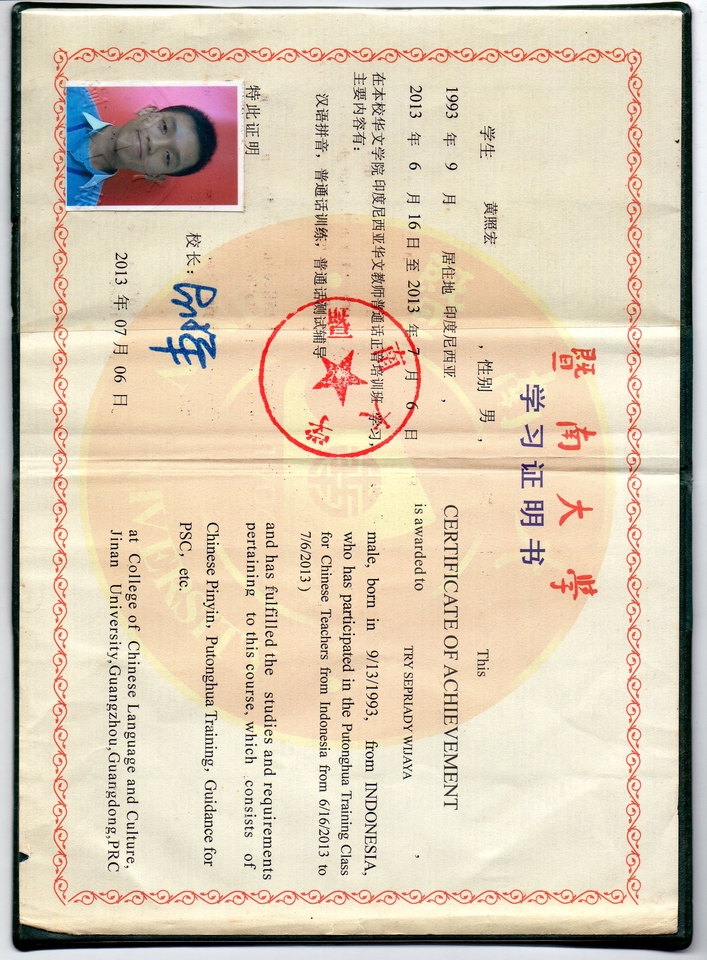 暨南大学
学习证明书
学生 黄照宏 , 性别 男 ,
1993 年 9 月 居住地 印度尼西亚 ,
2013 年 6 月 16 日 至 2013 年 7 月 6 日
在本校华文学院 印度尼西亚华文教师普通话正音培训班 学习,
主要内容有:
汉语拼音, 普通话训练, 普通话测试辅导
特此证明
校长:
2013 年 07 月 06 日
This
CERTIFICATE OF ACHIEVEMENT
is awarded to TRY SEPRIADY WIJAYA ,
male, born in 9/13/1993, from INDONESIA,
who has participated in the Putonghua Training Class
for Chinese Teachers from Indonesia from 6/16/2013 to
7/6/2013 )
and has fulfilled the studies and requirements
pertaining to this course, which consists of
Chinese Pinyin, Putonghua Training, Guidance for
PSC, etc.
at College of Chinese Language and Culture,
Jinan University,Guangzhou,Guangdong,PRC